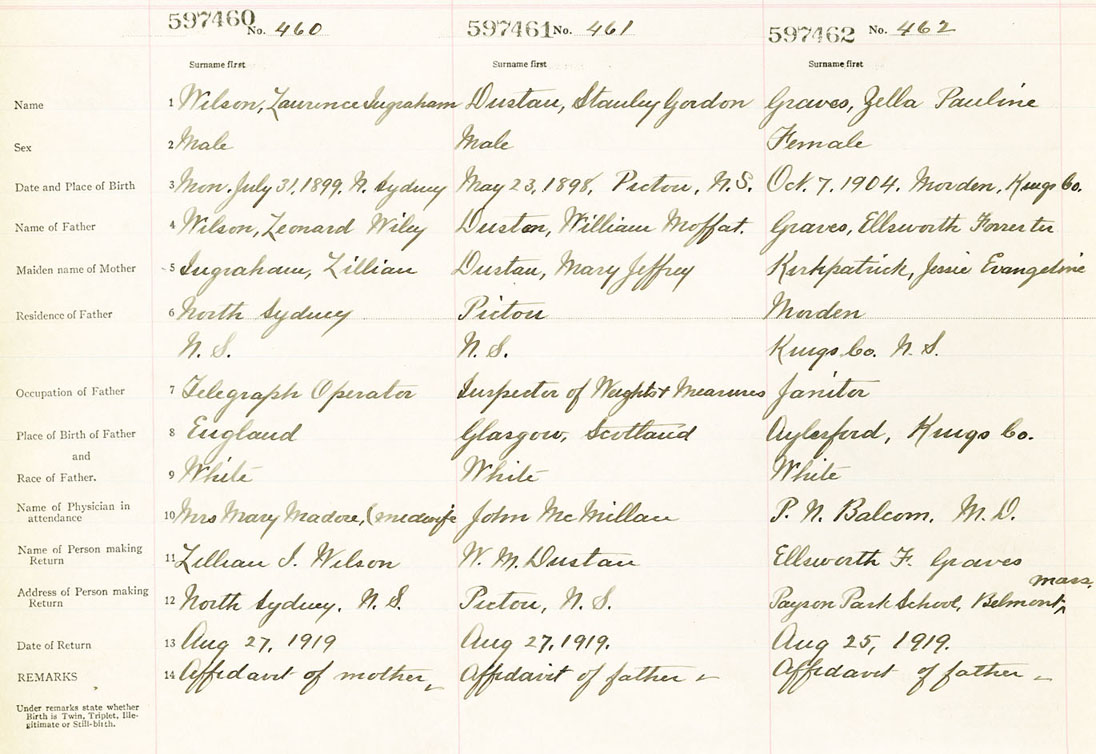 597460 No. 460 597461 No. 461 597462 No. 462
Surname first Surname first Surname first
Name 1 Wilson, Laurence Ingraham Dustan, Stanley Gordon Graves, Zella Pauline
Sex 2 Male Male Female
Date and Place of Birth 3 Mon. July 31, 1899. N. Sydney May 23, 1898, Pictou, N.S. Oct. 7. 1904. Morden, Kings Co.
Name of Father 4 Wilson, Leonard Wiley Dustan, William Moffat. Graves, Ellsworth Forrester
Maiden name of Mother 5 Ingraham, Lillian Dustan, Mary Jeffrey Kirkpatrick, Jessie Evangeline
Residence of Father 6 North Sydney Pictou Morden
N. S. N. S. Kings Co. N. S.
Occupation of Father 7 Telegraph Operator Inspector of Weights & Measures Janitor
Place of Birth of Father 8 England Glasgow, Scotland Aylesford, Kings Co.
and
Race of Father. 9 White White White
Name of Physician in
attendance 10 Mrs Mary Madore, (midwife John McMillan P. N. Balcom, M. D.
Name of Person making
Return 11 Lillian I. Wilson W. M. Dustan Ellsworth F. Graves
Address of Person making mass.
Return 12 North Sydney. N. S. Pictou, N. S. Payson Park School, Belmont,
Date of Return 13 Aug 27, 1919 Aug 27, 1919. Aug 25, 1919.
REMARKS 14 Affidavit of mother Affidavit of father Affidavit of father
Under remarks state whether
Birth is Twin, Triplet, Ille-
gitimate or Still-birth.